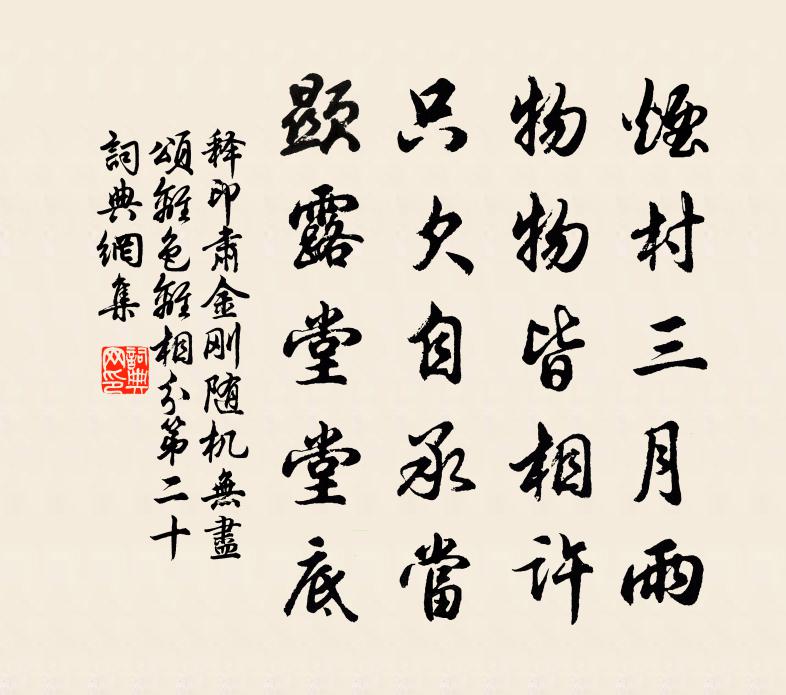 煙村三月雨
物物皆相許
只欠自承當
顯露堂堂底
释印肅金刚随机無盡
頌離色離相分第二十
詞典網集
詞典网印